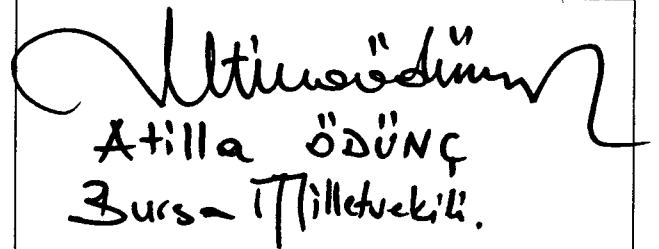 Atilla ÖDÜNÇ
Bursa Milletvekili.